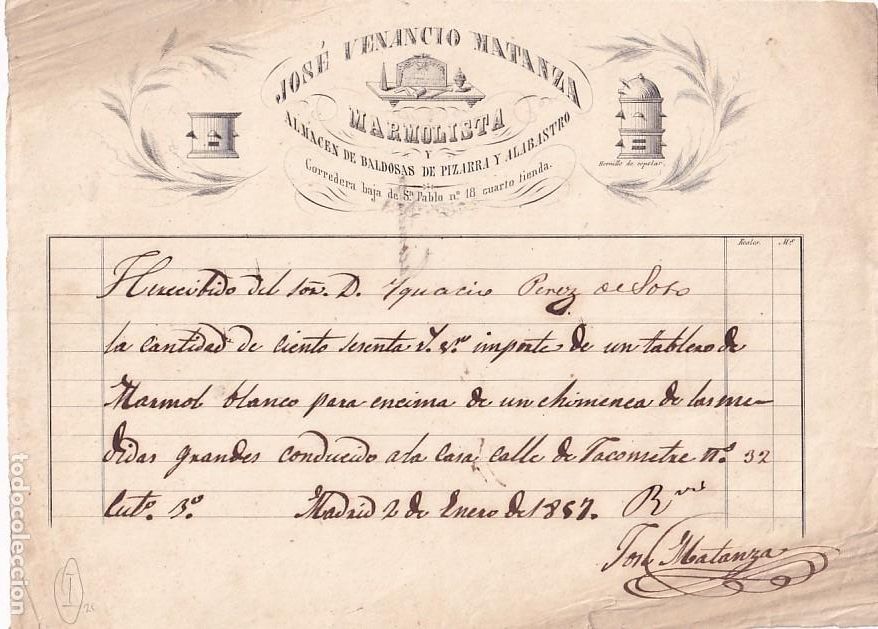 JOSÉ VENANCIO MATANZA
MARMOLISTA
Y
ALMACEN DE BALDOSAS DE PIZARRA Y ALABASTRO
Corredera baja de Sn. Pablo nº 18 cuarto tienda.
Hornillo de copelar.
Reales. Ms.
He recibido del Señr. D. Ygnacio Perez de Soto
la cantidad de ciento sesenta rs. vn. importe de un tablero de
Marmol blanco para encima de un chimenea de las me-
didas grandes conducido a la casa calle de Jacometre nº. 32
Cutº. 3º. Madrid 2 de Enero de 1857.
José Matanza
I
todocoleccion